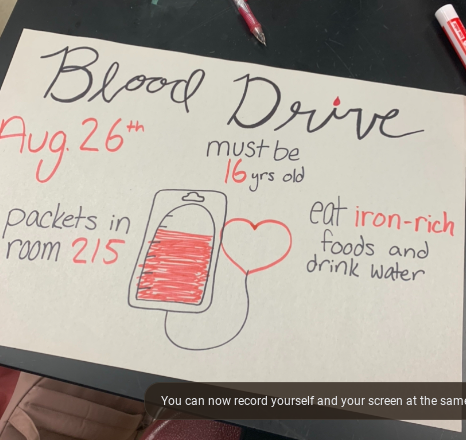 Blood Drive
Aug. 26th
must be
16 yrs old
packets in
room 215
eat iron-rich
foods and
drink water
You can now record yourself and your screen at the same